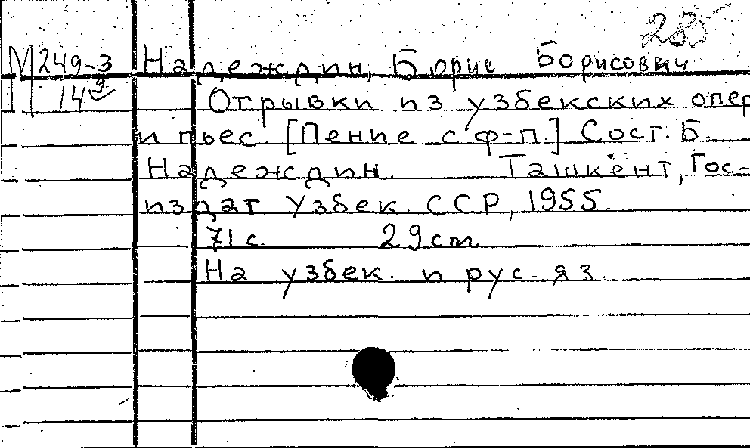 235
М 249-3 Надеждин, Борис Борисович
14
Отрывки из узбекских опер
и пьес. [Пение с ф-п.] Сост. Б.
Надеждин. Ташкент, Гос-
издат Узбек. ССР, 1955
71 с. 29 cm
На узбек. и рус. яз.